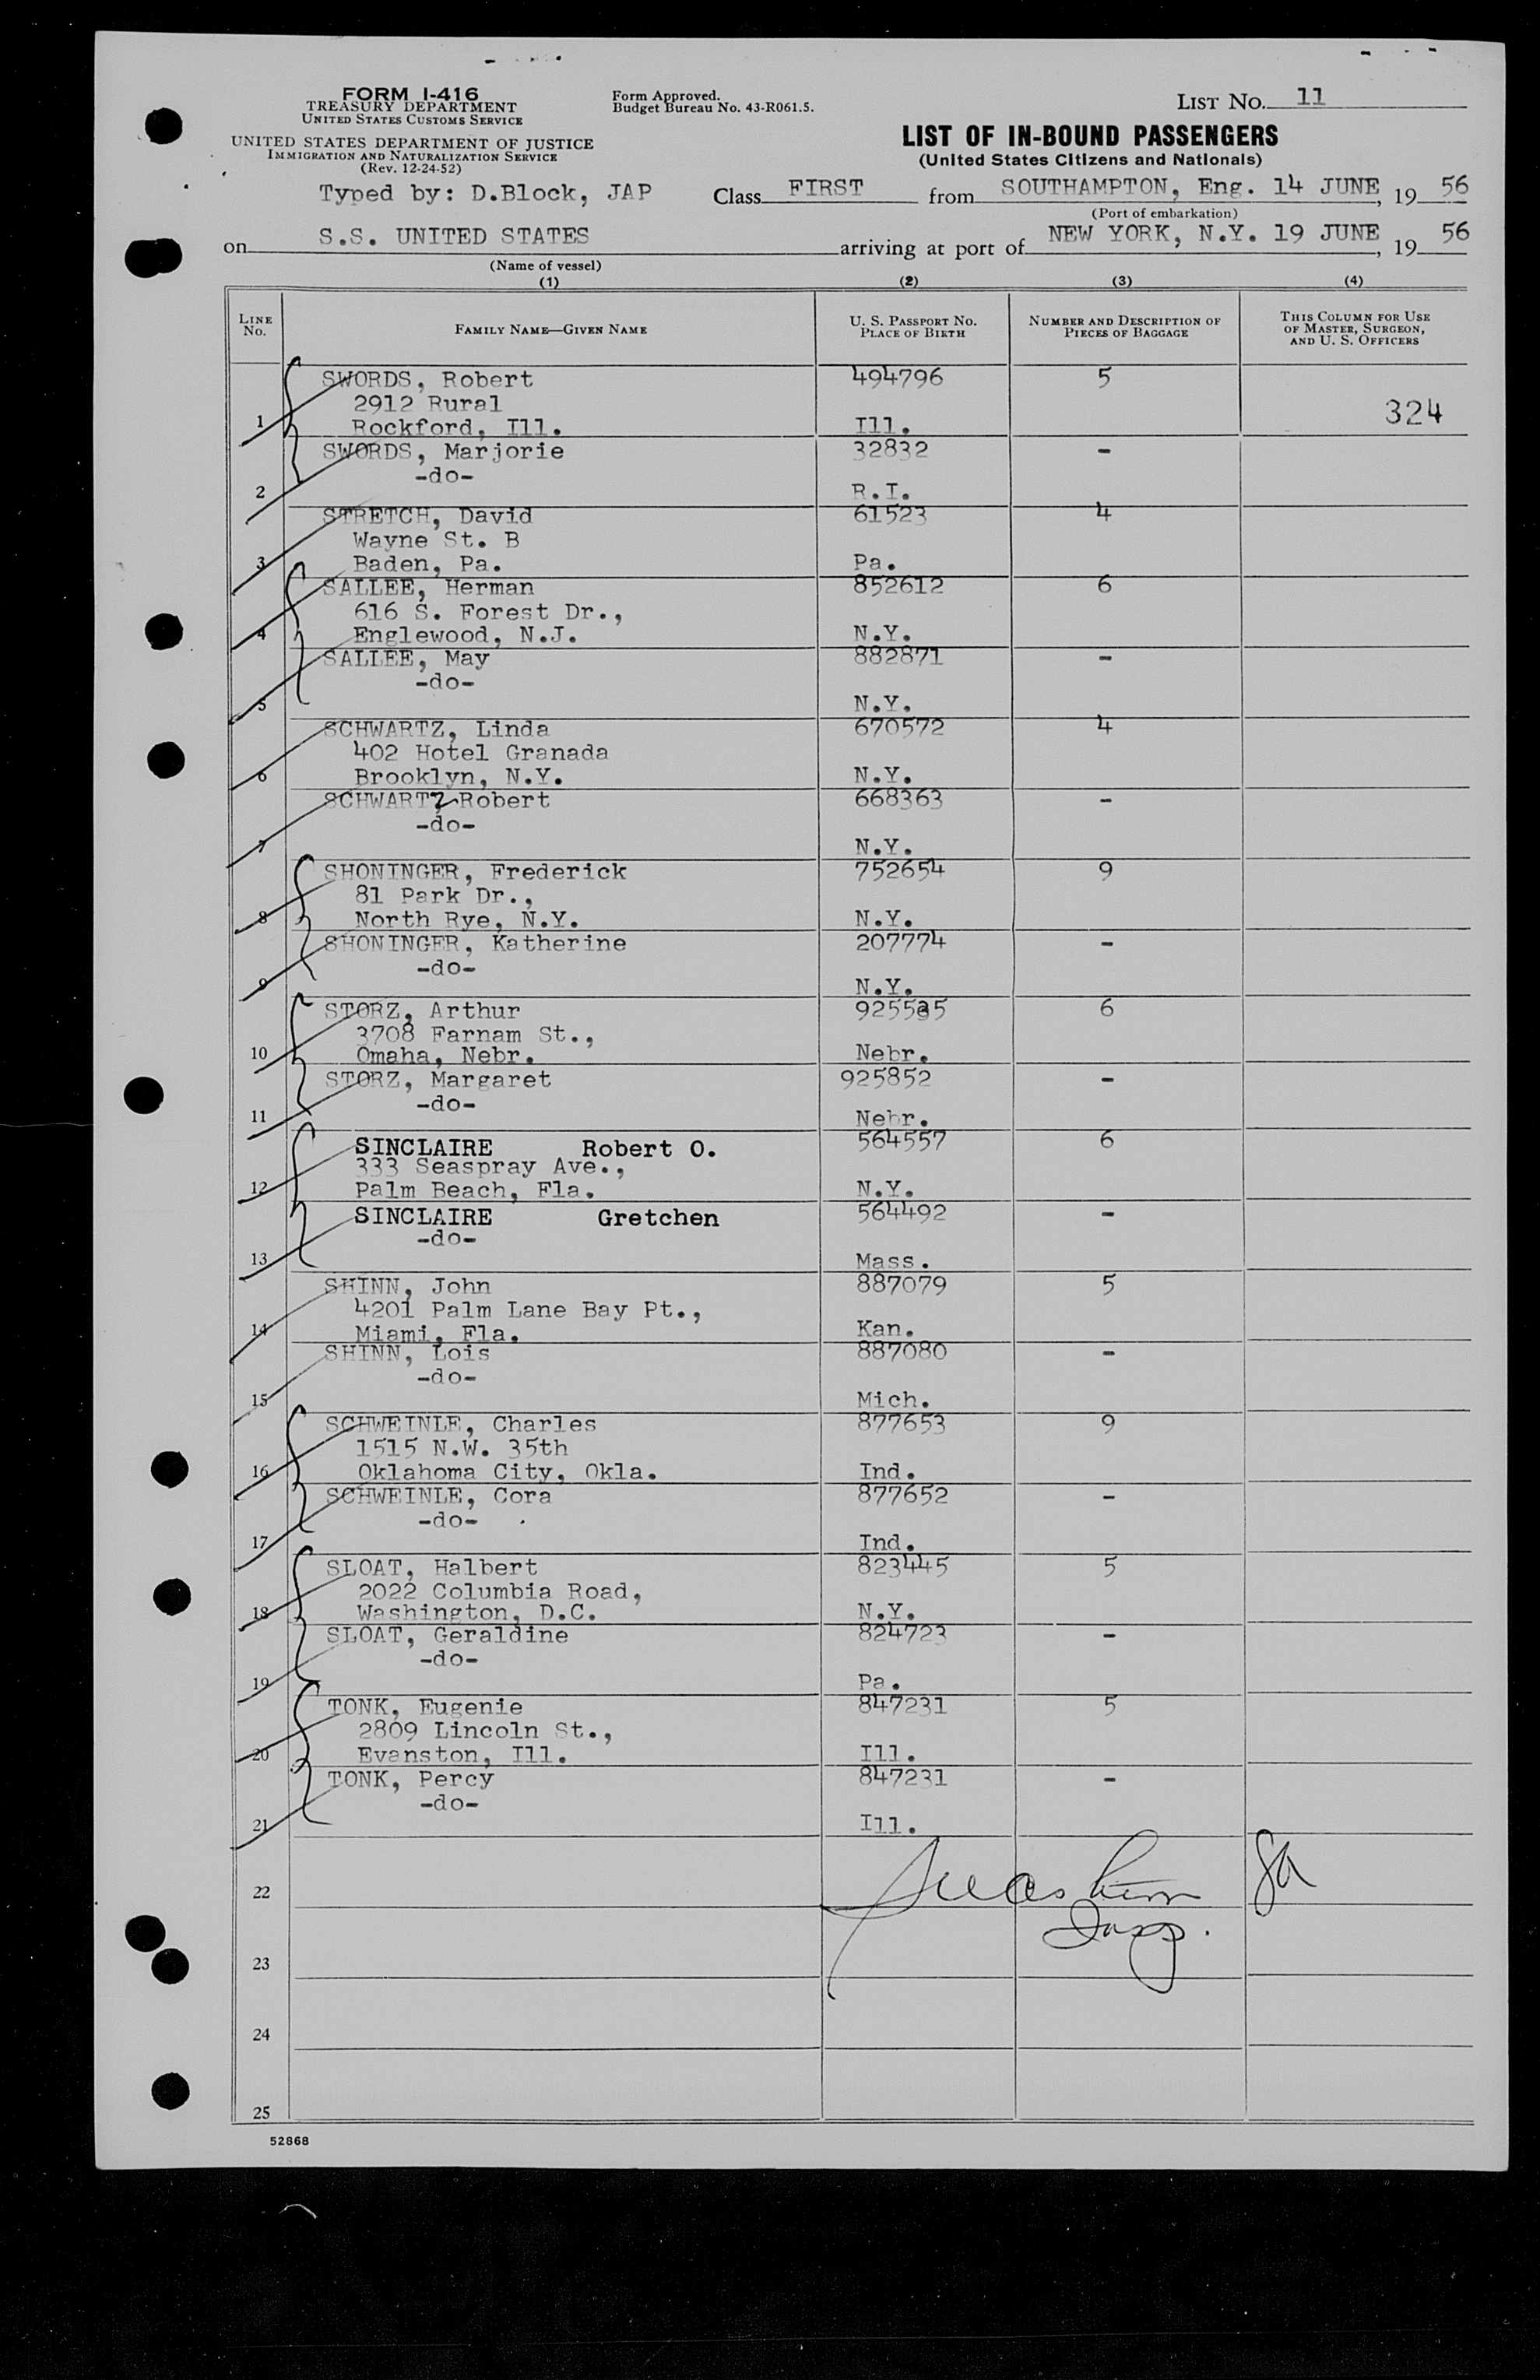 FORM I-416
TREASURY DEPARTMENT
UNITED STATES CUSTOMS SERVICE
UNITED STATES DEPARTMENT OF JUSTICE
IMMIGRATION AND NATURALIZATION SERVICE
(Rev. 12-24-52)
Form Approved.
Budget Bureau No. 43-R061.5.
LIST NO. 11
LIST OF IN-BOUND PASSENGERS
(United States Citizens and Nationals)
Typed by: D.Block, JAP
Class FIRST from SOUTHAMPTON, Eng. 14 JUNE, 19 56
(Port of embarkation)
on S.S. UNITED STATES arriving at port of NEW YORK, N.Y. 19 JUNE, 19 56
(Name of vessel)
(1) (2) (3) (4)
LINE NO. FAMILY NAME—GIVEN NAME U. S. PASSPORT NO. PLACE OF BIRTH NUMBER AND DESCRIPTION OF PIECES OF BAGGAGE THIS COLUMN FOR USE OF MASTER, SURGEON, AND U. S. OFFICERS
SWORDS, Robert 494796 5
2912 Rural 324
1 Rockford, Ill. Ill.
SWORDS, Marjorie 32832 -
-do-
2 R.I.
STRETCH, David 61523 4
Wayne St. B
3 Baden, Pa. Pa.
SALLEE, Herman 852612 6
616 S. Forest Dr.,
4 Englewood, N.J. N.Y.
SALLEE, May 882871 -
-do-
5 N.Y.
SCHWARTZ, Linda 670572 4
402 Hotel Granada
6 Brooklyn, N.Y. N.Y.
SCHWARTZ Robert 668363 -
-do-
7 N.Y.
SHONINGER, Frederick 752654 9
81 Park Dr.,
8 North Rye, N.Y. N.Y.
SHONINGER, Katherine 207774 -
-do-
9 N.Y.
STORZ, Arthur 6
3708 Farnam St.,
10 Omaha, Nebr. Nebr.
STORZ, Margaret 925852 -
-do-
11 Nebr.
SINCLAIRE Robert O. 564557 6
333 Seaspray Ave.,
12 Palm Beach, Fla. N.Y.
SINCLAIRE Gretchen 564492 -
-do-
13 Mass.
SHINN, John 887079 5
4201 Palm Lane Bay Pt.,
14 Miami, Fla. Kan.
SHINN, Lois 887080 -
-do-
15 Mich.
SCHWEINLE, Charles 877653 9
1515 N.W. 35th
16 Oklahoma City, Okla. Ind.
SCHWEINLE, Cora 877652 -
-do-
17 Ind.
SLOAT, Halbert 823445 5
2022 Columbia Road,
18 Washington, D.C. N.Y.
SLOAT, Geraldine 824723 -
-do-
19 Pa.
TONK, Eugenie 847231 5
2809 Lincoln St.,
20 Evanston, Ill. Ill.
TONK, Percy 847231 -
-do-
21 Ill.
22
23
24
25
52868